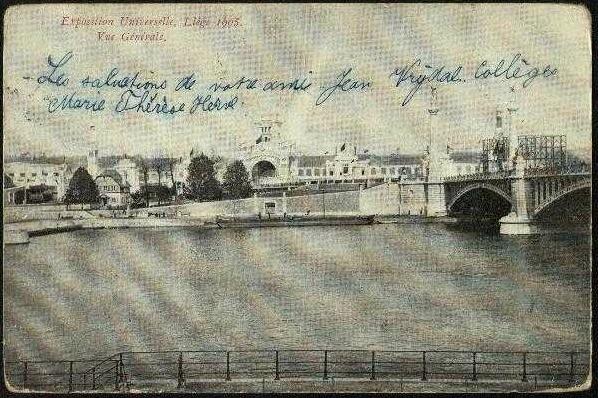 Exposition Universelle, Liège 1905.
Vue Générale.
Les salutations de votre ami Jean Collèges
Marie Thérèse Herve.